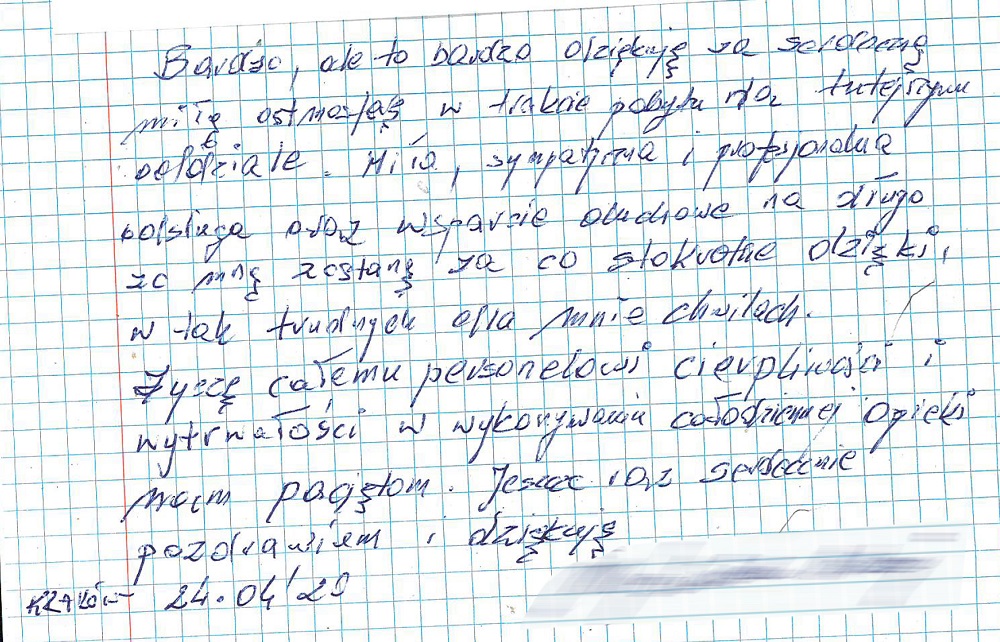 Bardzo, ale to bardzo dziękuję za serdeczną
miłą w trakcie pobytu na tutejszym
oddziale. Miła, sympatyczna i profesjonalna
obsługa oraz wsparcie duchowe na długo
ze mną zostaną za co stokrotne dzięki,
w tak trudnych dla mnie chwilach.
Życzę całemu personelowi cierpliwości i
wytrwałości w wykonywaniu całodziennej opieki
pacjętom. Jeszcze raz serdecznie
pozdrawiam i dziękuję
Kraków 24.04'20